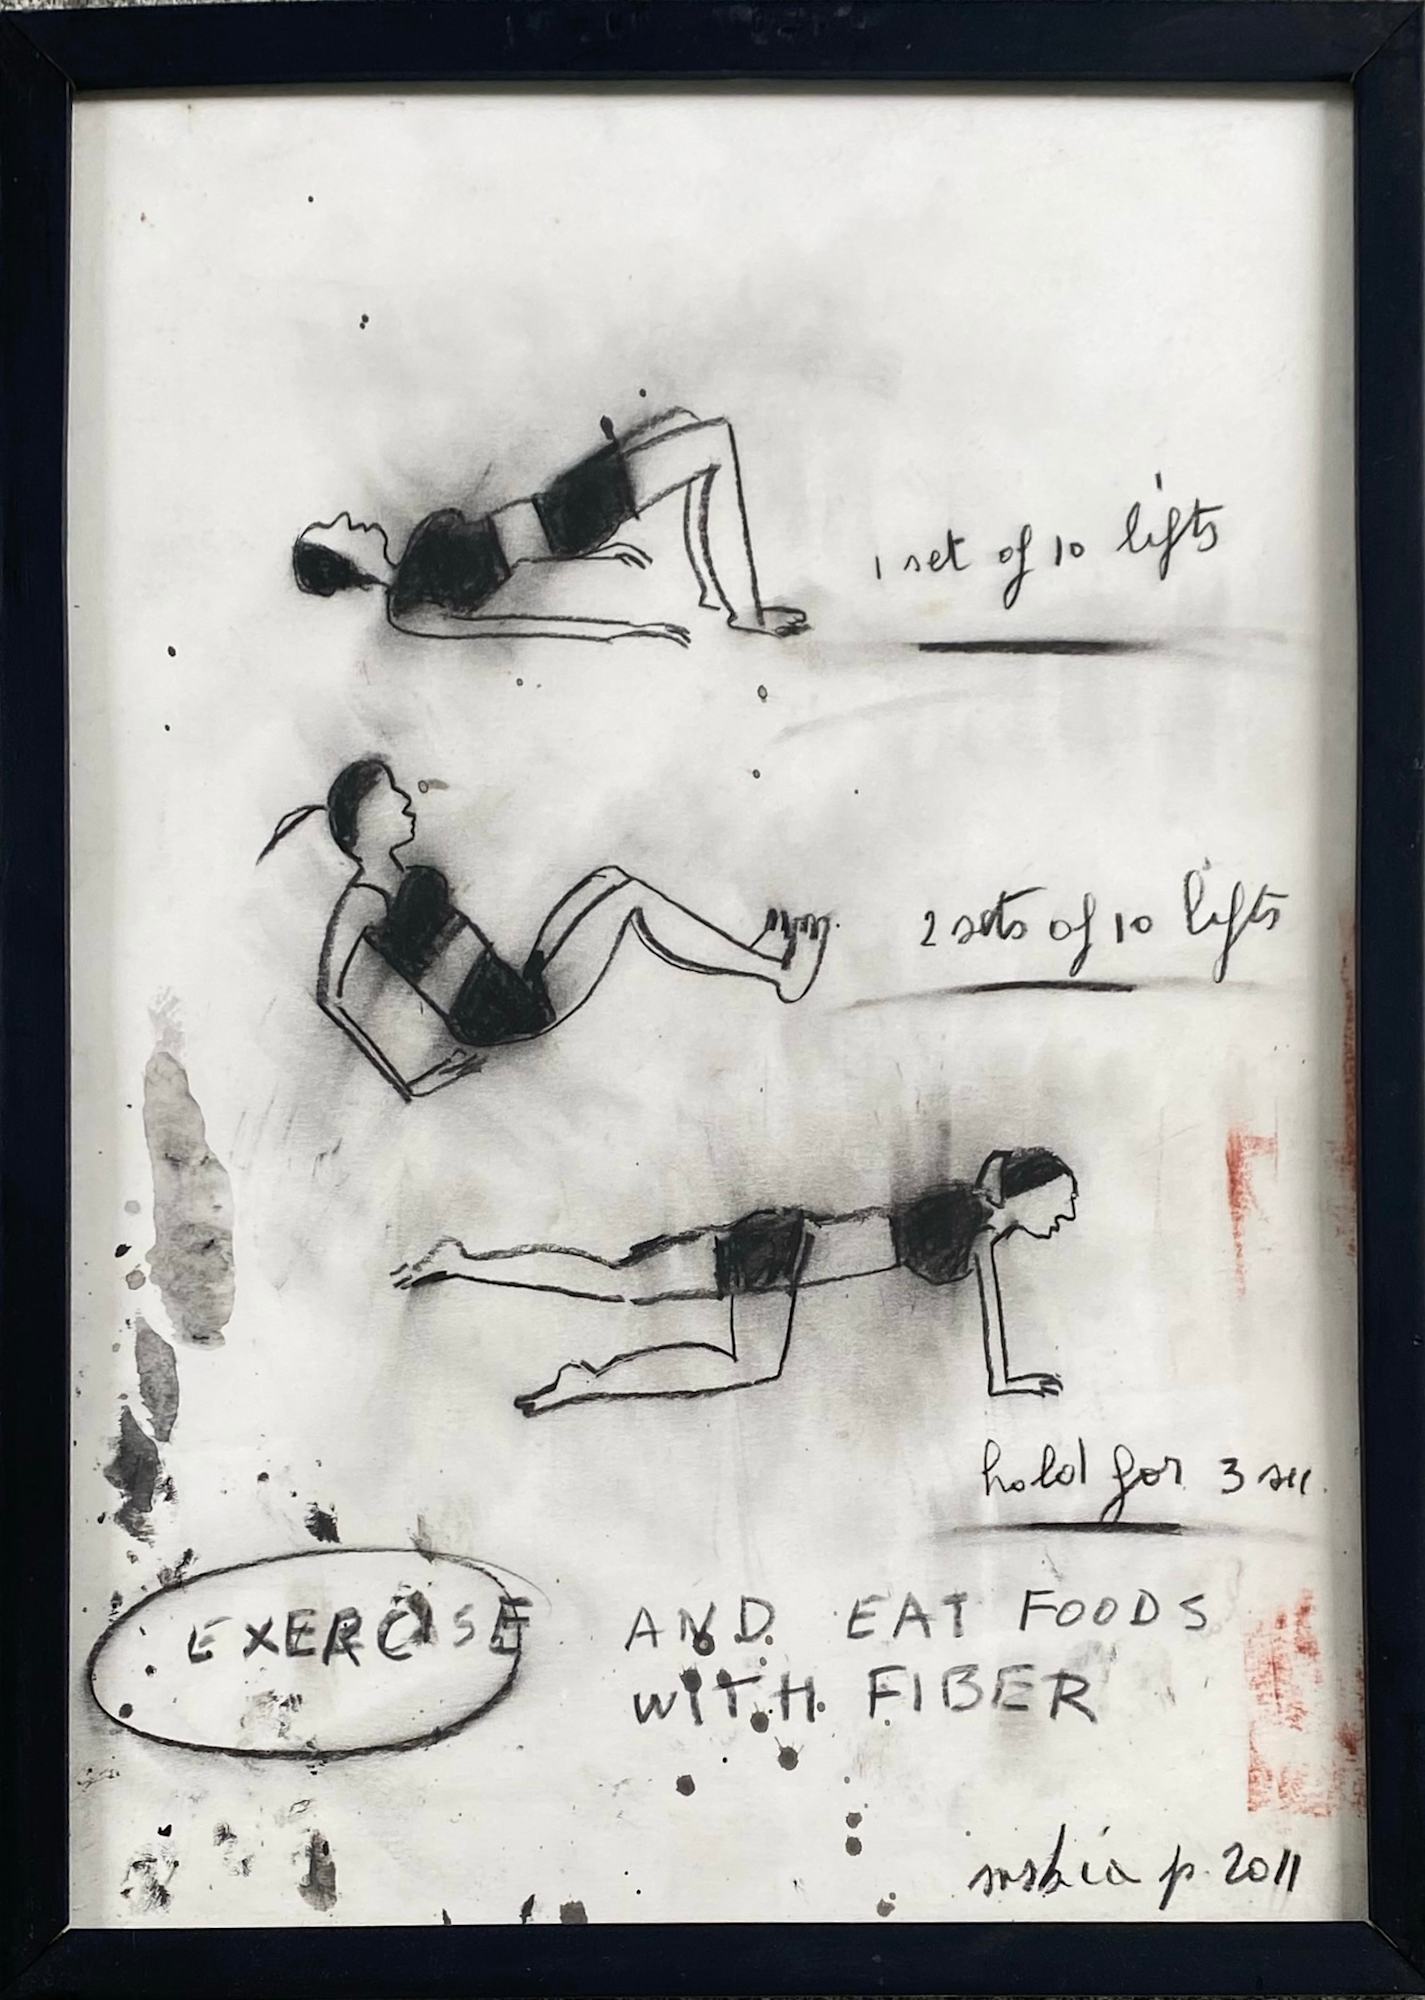 1 set of 10 lifts
2 sets of 10 lifts
hold for 3 sec.
EXERCISE AND EAT FOODS
WITH FIBER
saskia p. 2011